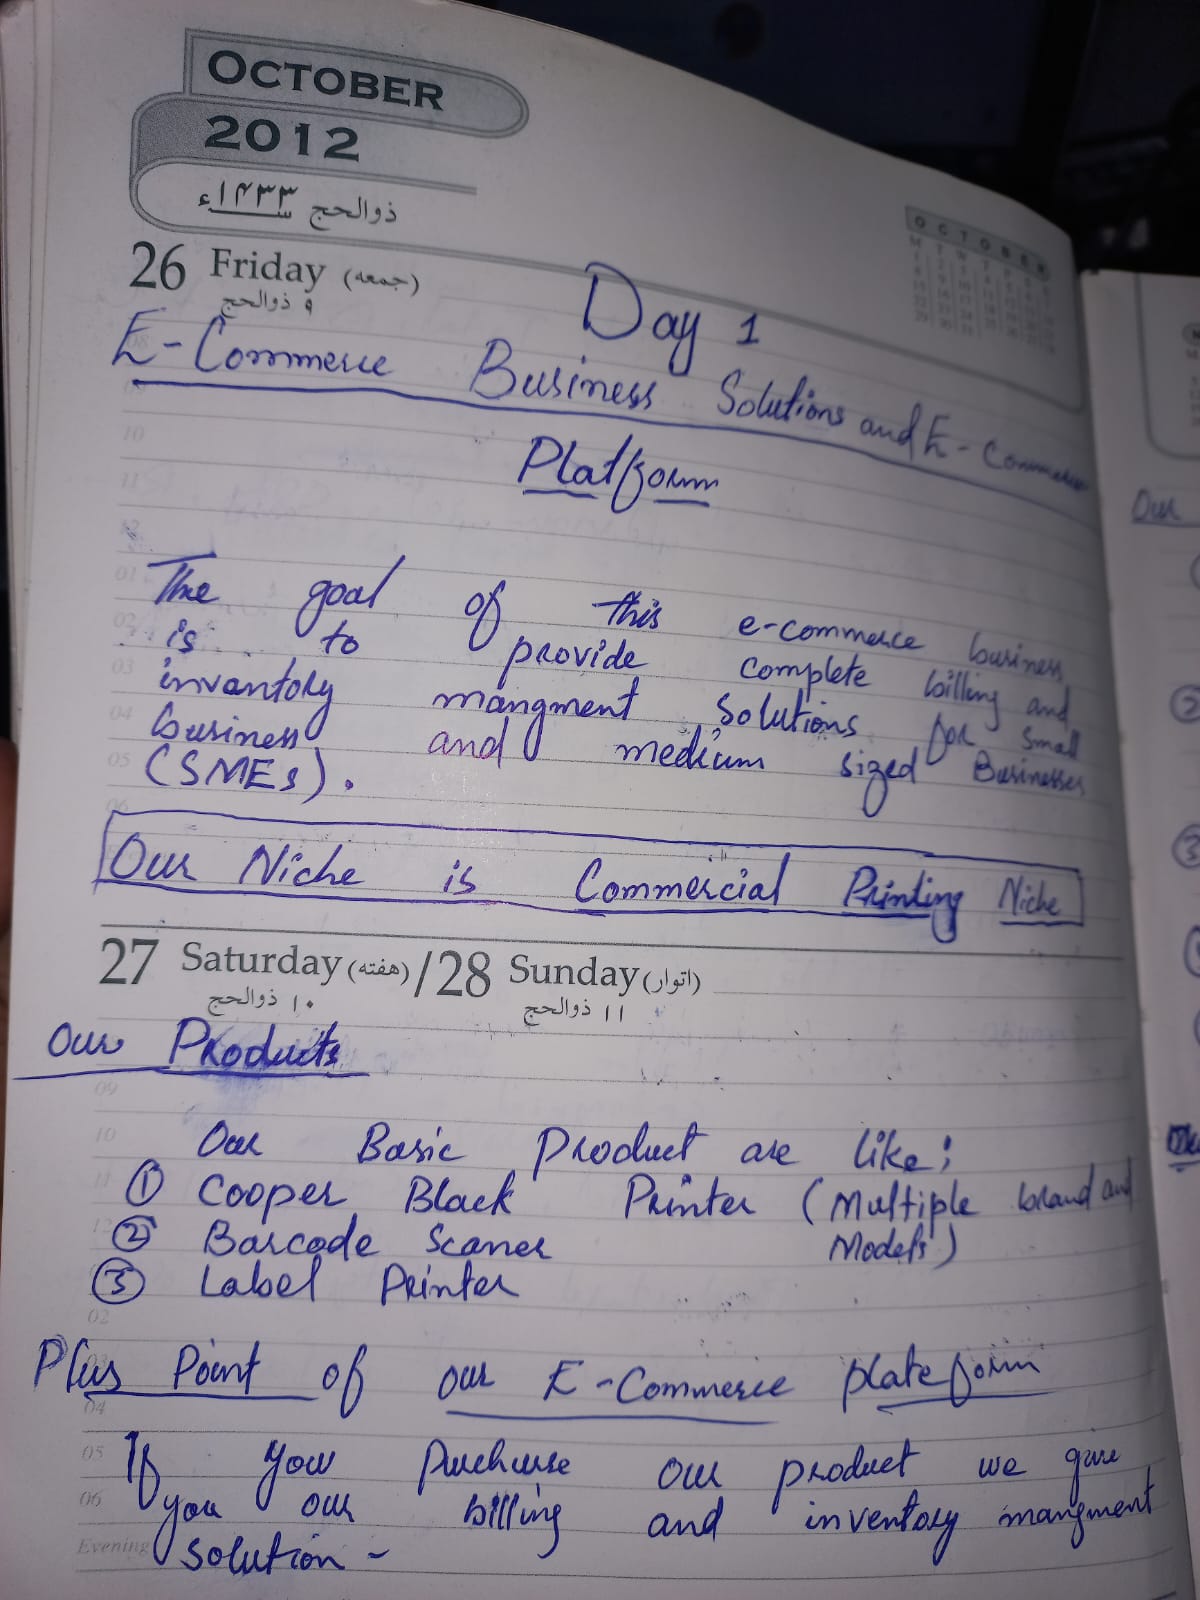 OCTOBER
2012
ذوالحج ۱۴۳۳ء
OCTOBER
26 Friday (جمعه)
۹ ذوالحج
Day 1
E-Commerce Business Solutions and E-Commerce
Platform
The goal of this e-commerce business
is to provide complete billing and
invantory mangment solutions for small
business and medium sized Businesses
(SMEs).
Our Niche is Commercial Printing Niche
27 Saturday (هفته) / 28 Sunday (اتوار)
۱۰ ذوالحج ۱۱ ذوالحج
Our Products
Our Basic Product are like;
① Cooper Black Printer (Multiple brand and
② Barcode Scaner Models)
③ Label Printer
Plus Point of our E-Commerce plateform
If your puchurse our product we give
you our billing and inventory mangment
Evening solution -
Our
②
③